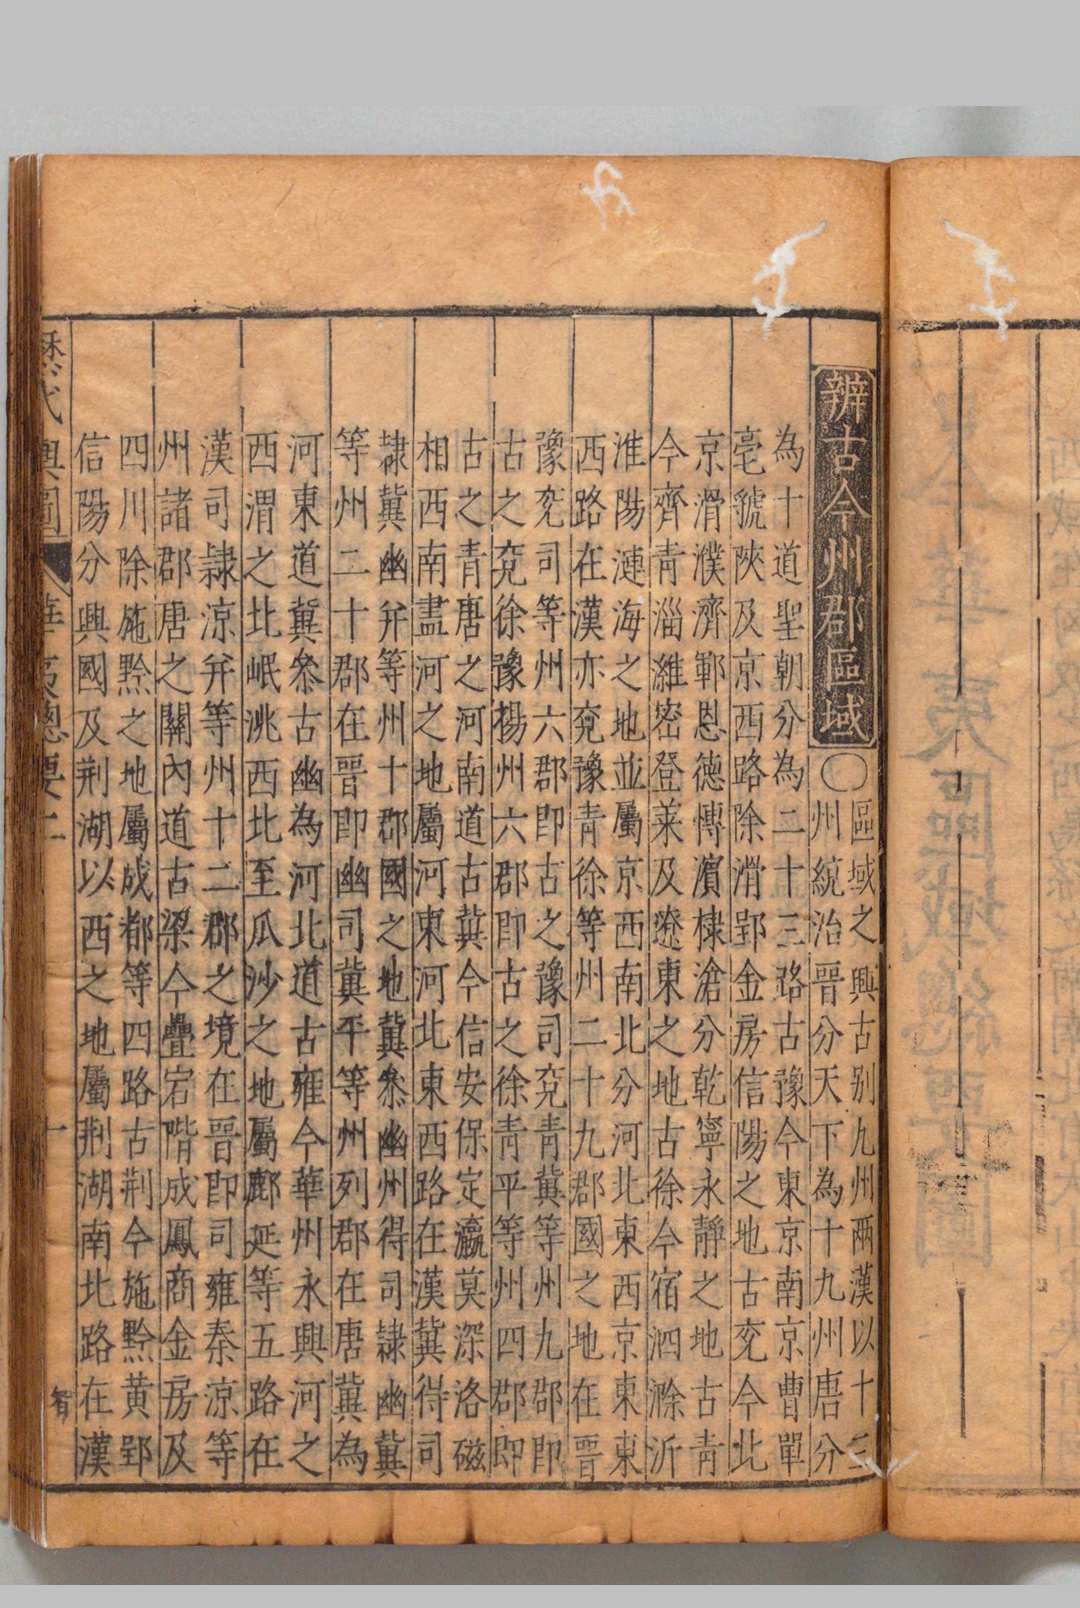 辨古今州郡區域〇區域之興古别九州兩漢以十三
州統治晉分天下為十九州唐分
為十道聖朝分為二十三路古豫今東京南京曹單
亳虢陝及京西路除滑郢金房信陽之地古兗今北
京滑濮濟鄆恩德慱濵棣滄分乾寧永靜之地古青
今齊青淄濰密登萊及遼東之地古徐今宿泗滁沂
淮陽漣海之地並屬京西南北分河北東西京東東
西路在漢亦兗豫青徐等州二十九郡國之地在晉
豫兗司等州六郡即古之豫司兗青冀等州九郡即
古之兗徐豫揚州六郡即古之徐青平等州四郡即
古之青唐之河南道古冀今信安保定瀛莫深洛磁
相西南盡河之地屬河東河北東西路在漢冀得司
隸冀幽并等州十郡國之地冀叅幽州得司隸幽冀
等州二十郡在晉即幽司冀平等州列郡在唐冀為
河東道冀叅古幽為河北道古雍今華州永興河之
西渭之北岷洮西北至瓜沙之地屬鄜延等五路在
漢司隸涼弁等州十二郡之境在晉即司雍秦涼等
州諸郡唐之關內道古梁今疊宕階成鳳商金房及
四川除施黔之地屬成都等四路古荆今施黔黄郢
信陽分興國及荆湖以西之地屬荆湖南北路在漢
歷代輿圖
華夷總要二
十
智